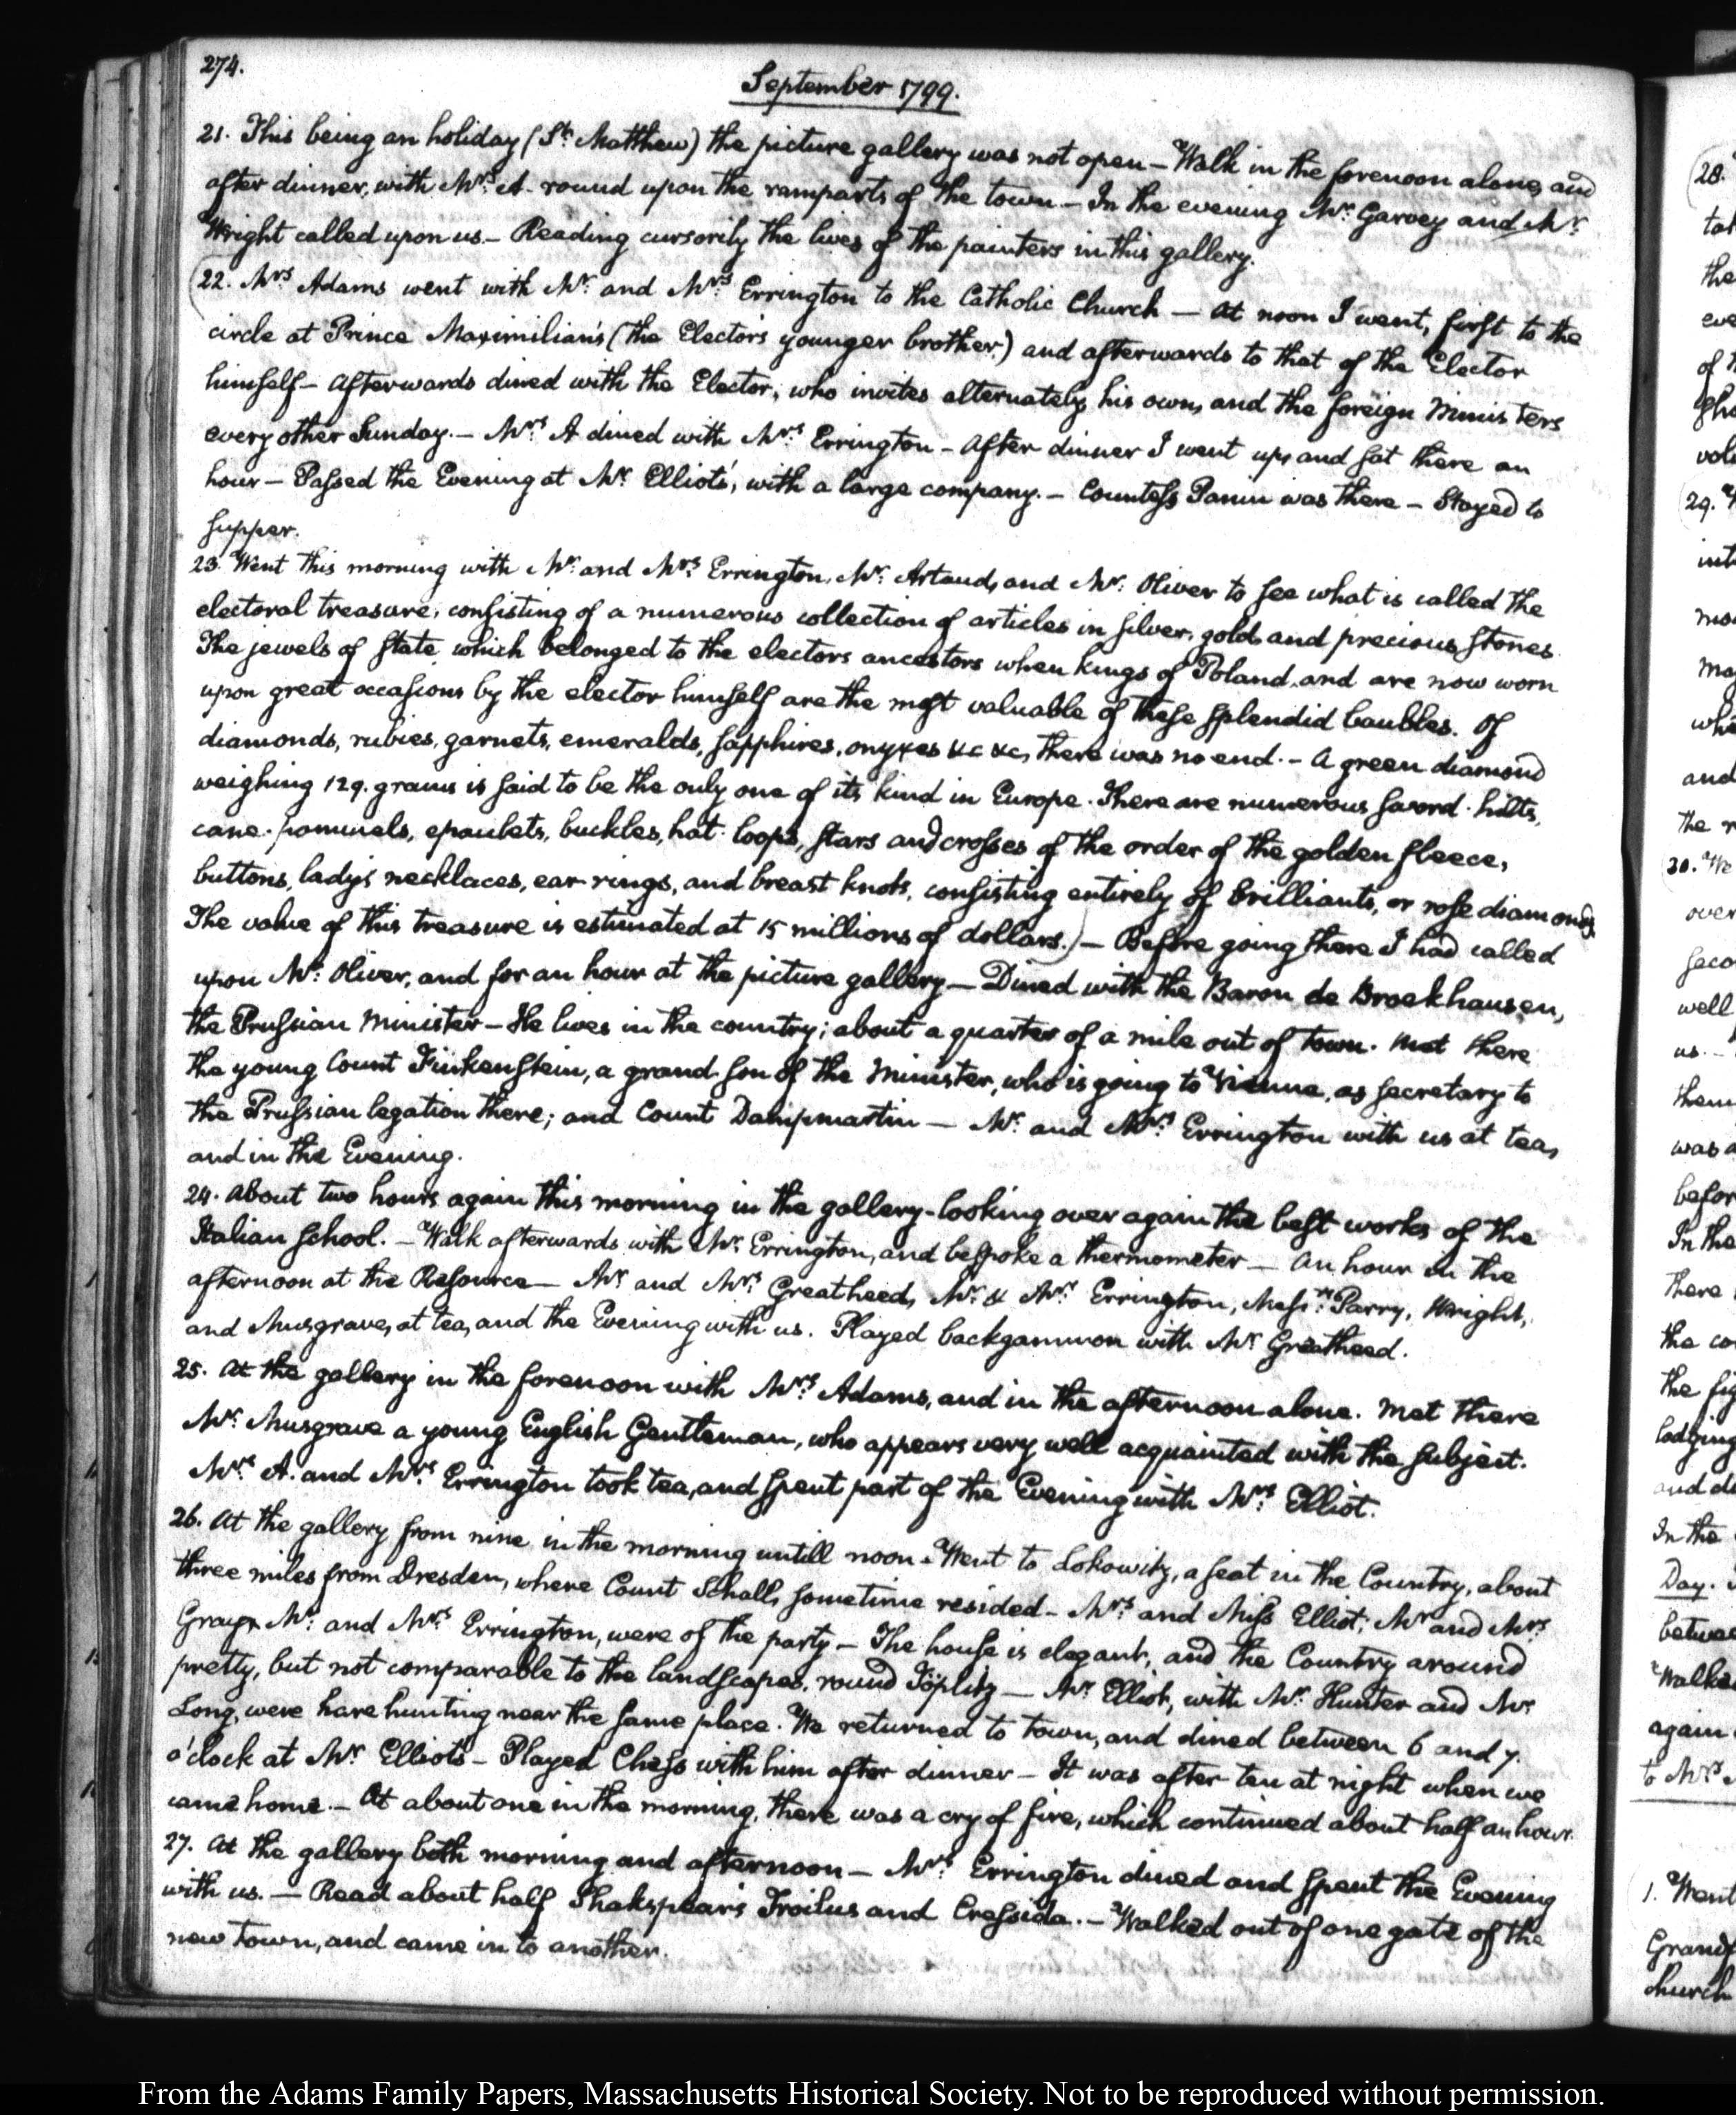 274.
September 1799.
21. This being an holiday (St. Matthew) the picture gallery was not open — Walk in the forenoon alone, and
after dinner, with Mrs. A. round upon the ramparts of the town — In the evening Mr. Garvey and Mr.
Wright called upon us. — Reading cursorily the lives of the painters in this gallery.
22. Mrs. Adams went with Mr. and Mrs. Errington to the Catholic Church — At noon I went, first to the
circle at Prince Maximilian's (the Elector's younger brother) and afterwards to that of the Elector
himself — Afterwards dined with the Elector, who invites alternately his own, and the foreign Ministers
every other Sunday. — Mrs. A dined with Mrs. Errington — After dinner I went up, and sat there an
hour — Passed the Evening at Mr. Elliot's, with a large company. — Countess Panin was there — Stayed to
supper.
23. Went this morning with Mr. and Mrs. Errington, Mr. Artaud, and Mr. Oliver to see what is called the
electoral treasure, consisting of a numerous collection of articles in silver, gold, and precious stones
The jewels of state which belonged to the electors ancestors when kings of Poland, and are now worn
upon great occasions by the elector himself are the most valuable of these splendid baubles. Of
diamonds, rubies, garnets, emeralds, sapphires, onyxes &c &c, there was no end. — A green diamond
weighing 129. grains is said to be the only one of its kind in Europe. There are numerous sword-hilts,
cane-pommels, epaulets, buckles, hat-loops, stars and crosses of the order of the golden fleece,
buttons, lady's necklaces, ear-rings, and breast knots, consisting entirely of brilliants, or rose diamonds.
The value of this treasure is estimated at 15 millions of dollars.) — Before going there I had called
upon Mr. Oliver, and for an hour at the picture gallery — Dined with the Baron de Brockhausen,
the Prussian Minister — He lives in the country; about a quarter of a mile out of town. Met there
the young Count Finkenstein, a grand-son of the Minister, who is going to Vienna, as secretary to
the Prussian legation there; and Count Dampmartin — Mr. and Mrs. Errington with us at tea,
and in the Evening.
24. About two hours again this morning in the gallery — looking over again the best works of the
Italian school. — Walk afterwards with Mr. Errington, and bespoke a thermometer — An hour in the
afternoon at the Resource — Mr. and Mrs. Greatheed, Mr. & Mrs. Errington, Messrs. Parry, Wright,
and Musgrave, at tea, and the Evening with us. Played backgammon with Mr. Greatheed.
25. At the gallery in the forenoon with Mrs. Adams, and in the afternoon alone. Met there
Mr. Musgrave a young English Gentleman, who appears very well acquainted with the subject.
Mrs. A. and Mrs. Errington took tea, and spent part of the Evening with Mrs. Elliot.
26. At the gallery from nine in the morning untill noon — Went to Lokowitz, a seat in the Country, about
three miles from Dresden, where Count Schall, sometime resided — Mrs. and Miss Elliot, Mr. and Mrs.
Gray, Mr. and Mrs. Errington, were of the party — The house is elegant, and the Country around
pretty, but not comparable to the landscapes, round Töplitz — Mr. Elliot, with Mr. Hunter and Mr.
Long, were hare hunting near the same place. We returned to town, and dined between 6 and 7.
o'clock at Mr. Elliot's — Played Chess with him after dinner — It was after ten at night when we
came home. — At about one in the morning, there was a cry of fire, which continued about half an hour.
27. At the gallery both morning and afternoon — Mrs. Errington dined and spent the Evening
with us. — Read about half Shakspear's Troilus and Cressida. — Walked out of one gate of the
new town, and came in to another.
28.
29.
30. We
1. Went
church
From the Adams Family Papers, Massachusetts Historical Society. Not to be reproduced without permission.